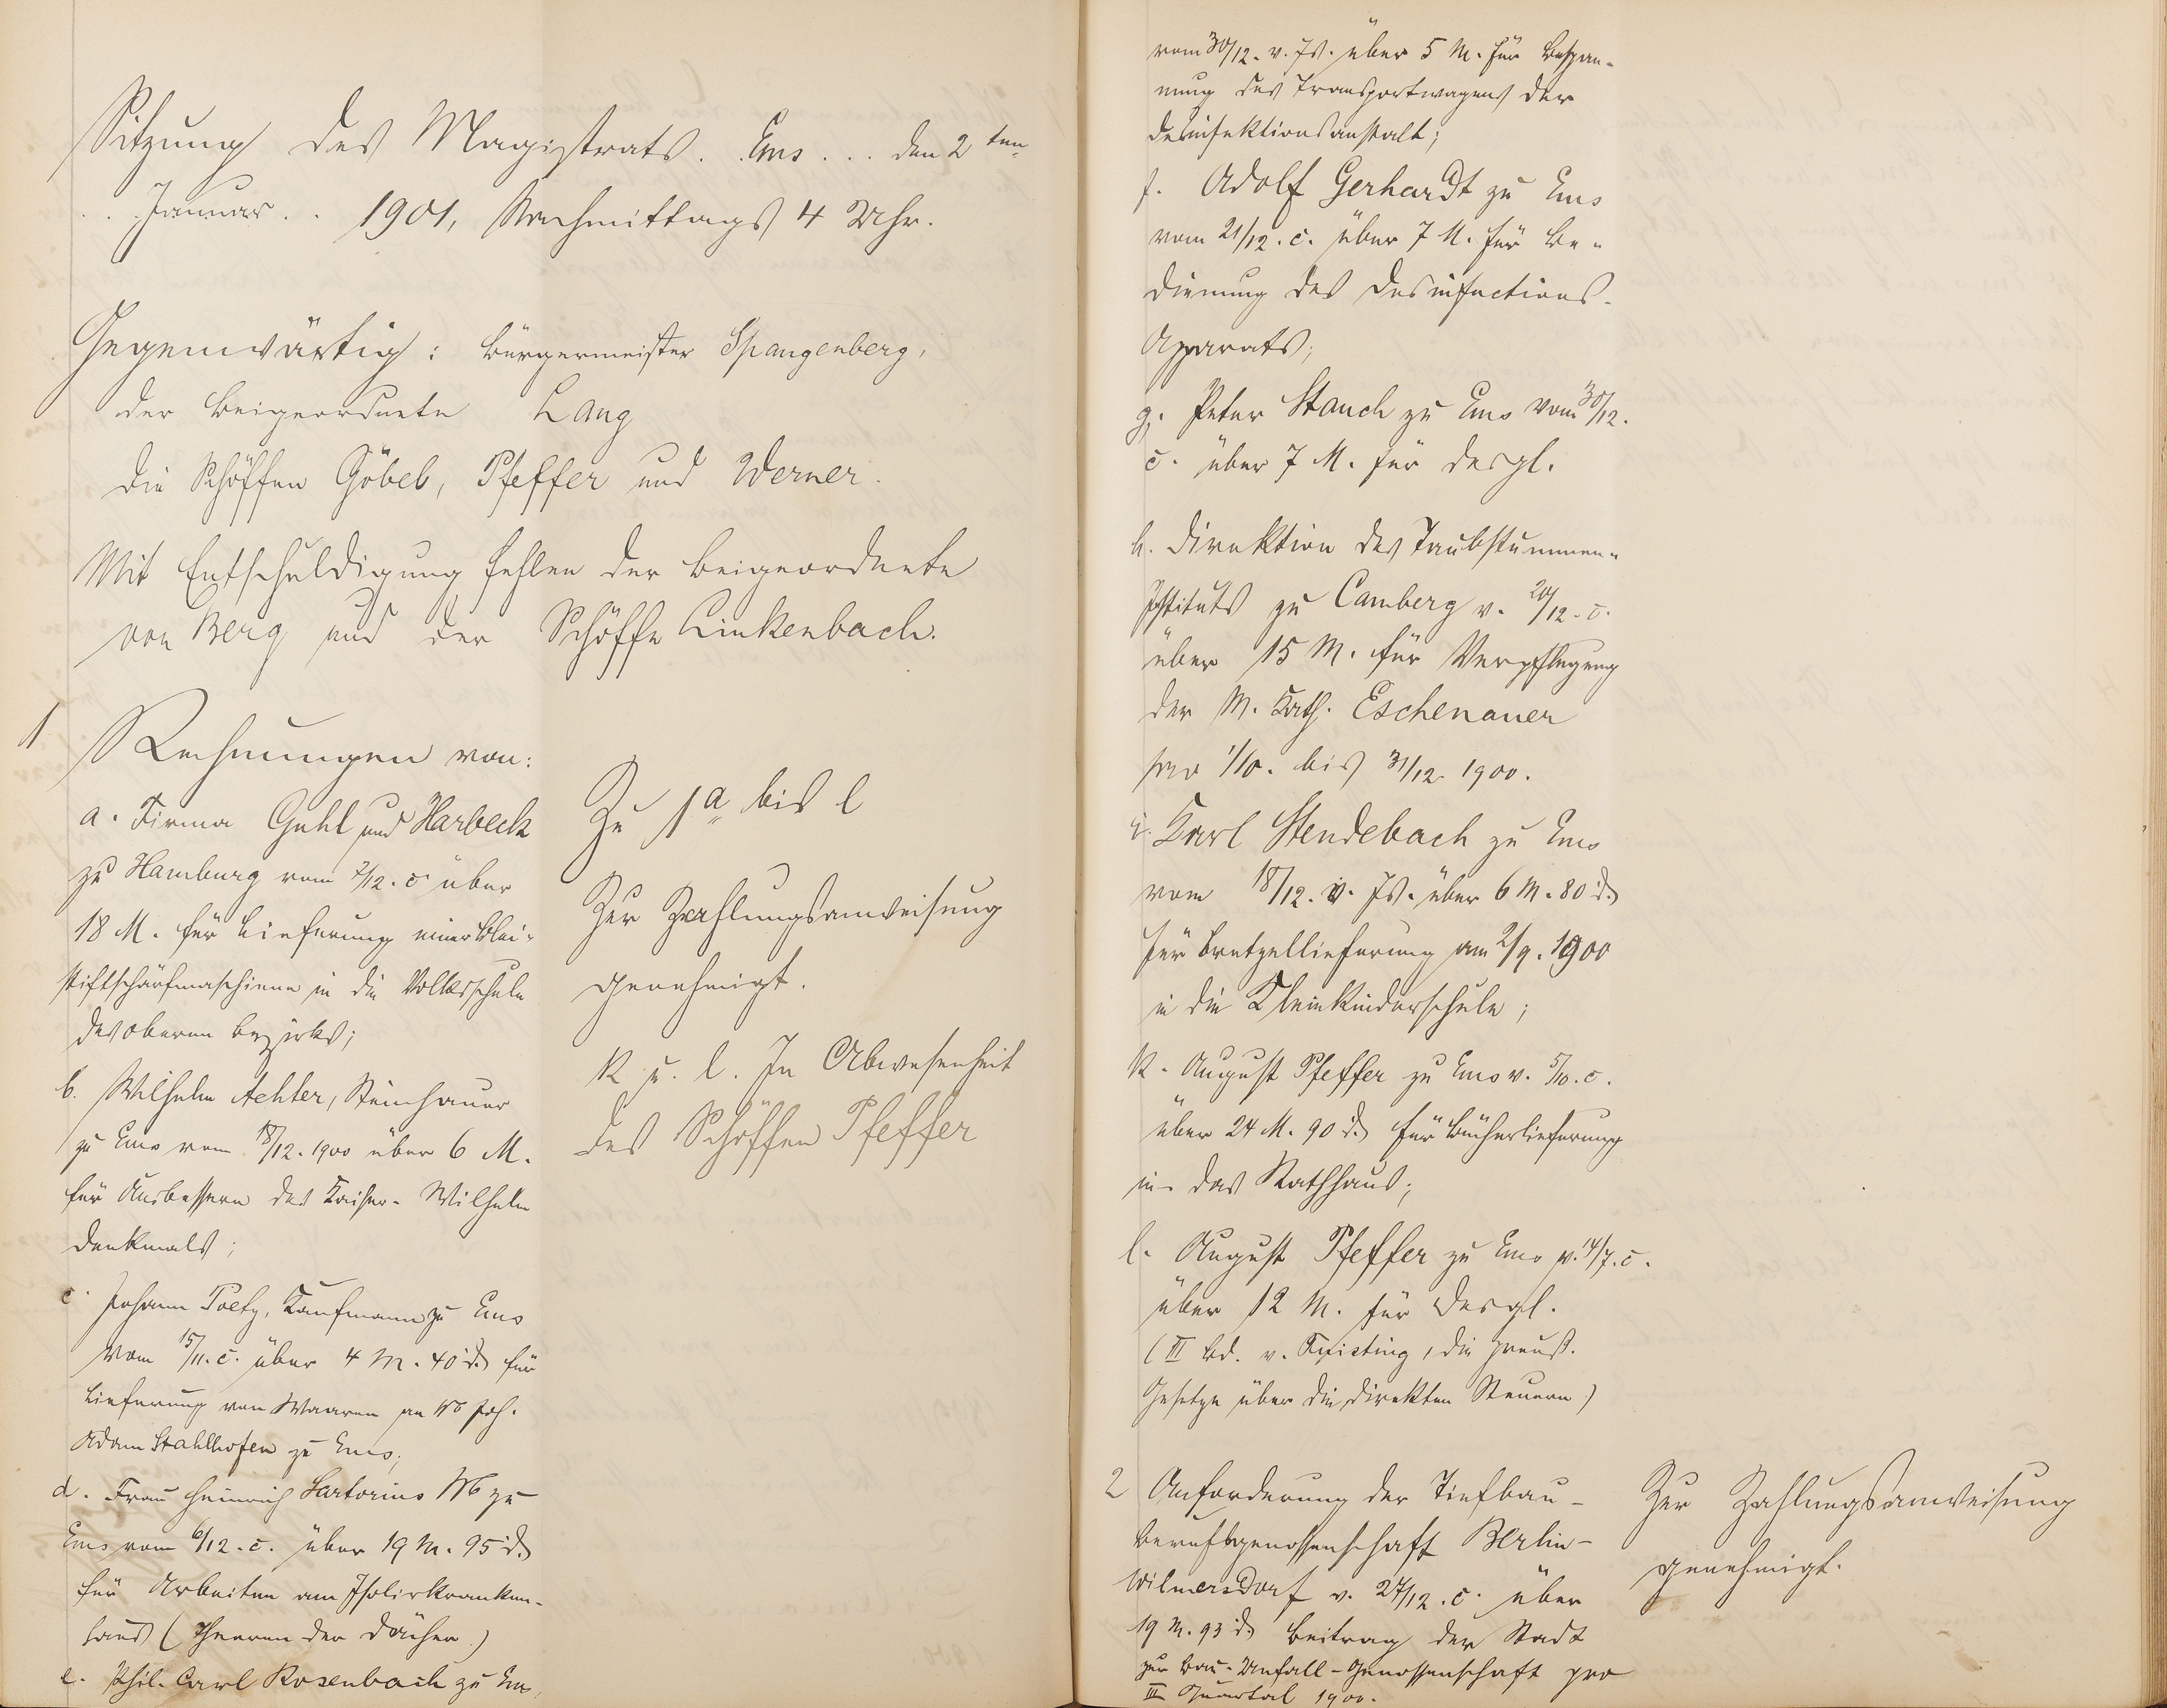 Sitzung des Magistrats. Ems... den 2ten
.. Januar.. 1901, Nachmittags 4 Uhr.
Gegenwärtig: Bürgermeister Spangenberg,
der Beigeordnete Lang
die Schöffen Göbel, Pfeffer und Werner.
Mit Entschuldigung fehlen der Beigeordnete
von Berg und der Schöffe Linkenbach.
1 Rechnungen von:
a. Firma Guhl und Harbeck
zu Hamburg vom 7/12. c. über
18 M. für Lieferung einer Blei-
stiftschärfmaschiene in die Volksschule
des oberen Bezirks;
b. Wilhelm Achter, Steinhauer
zu Ems vom 18/12. 1900 über 6 M.
für Ausbessern des Kaiser-Wilhelm
Denkmals;
c. Johann Poety, Kaufmann zu Ems
vom 15/11. c. über 4 M. 40 d. für
Lieferung von Waaren an Wb Joh.
Adam Stahlhofen zu Ems;
d. Frau Heinrich Sartorius Wb zu
Ems vom 6/12. c. über 19 M. 95 d.
für Arbeiten am Isolirkranken-
haus (Theeren der Dächer)
e. Phil. Carl Rosenbach zu Ems,
Zu 1 a bis l
Zur Zahlungsanweisung
genehmigt.
k u. l. In Abwesenheit
des Schöffen Pfeffer
vom 30/12. v. Js. über 5 M. für Bespan-
nung des Transportwagens der
Desinfektionsanstalt;
f. Adolf Gerhardt zu Ems
vom 21/12. c. über 7 M. für Be-
dienung des Desinfections-
Apparats;
g. Peter Stauch zu Ems vom 30/12.
c. über 7 M. für desgl.
h. Direktion des Taubstummen-
Istituts zu Camberg v. 20/12. c.
über 15 M. für Verpflegung
der M. Kath. Eschenauer
pro 1/10. bis 31/12. 1900.
i. Karl Stendebach zu Ems
vom 18/12. v. Js. über 6 M. 80 d.
für Bretzellieferung am 2/9. 1900
in die Kleinkinderschule;
k. August Pfeffer zu Ems v. 5/10. c.
über 24 M. 90 d. für Bücherlieferung
in das Rathhaus;
l. August Pfeffer zu Ems v. 14/7. c.
über 12 M. für desgl.
(III Bd. v. Fuisting, die preuß.
Gesetze über die direkten Steuern)
2 Anforderung der Tiefbau-
berufsgenossenschaft Berlin-
Wilmersdorf v. 27/12. c. über
19 M. 93 d. Beitrag der Stadt
zur Bau-Unfall-Genossenschaft pro
III Quartal 1900.
Zur Zahlungsanweisung
genehmigt.